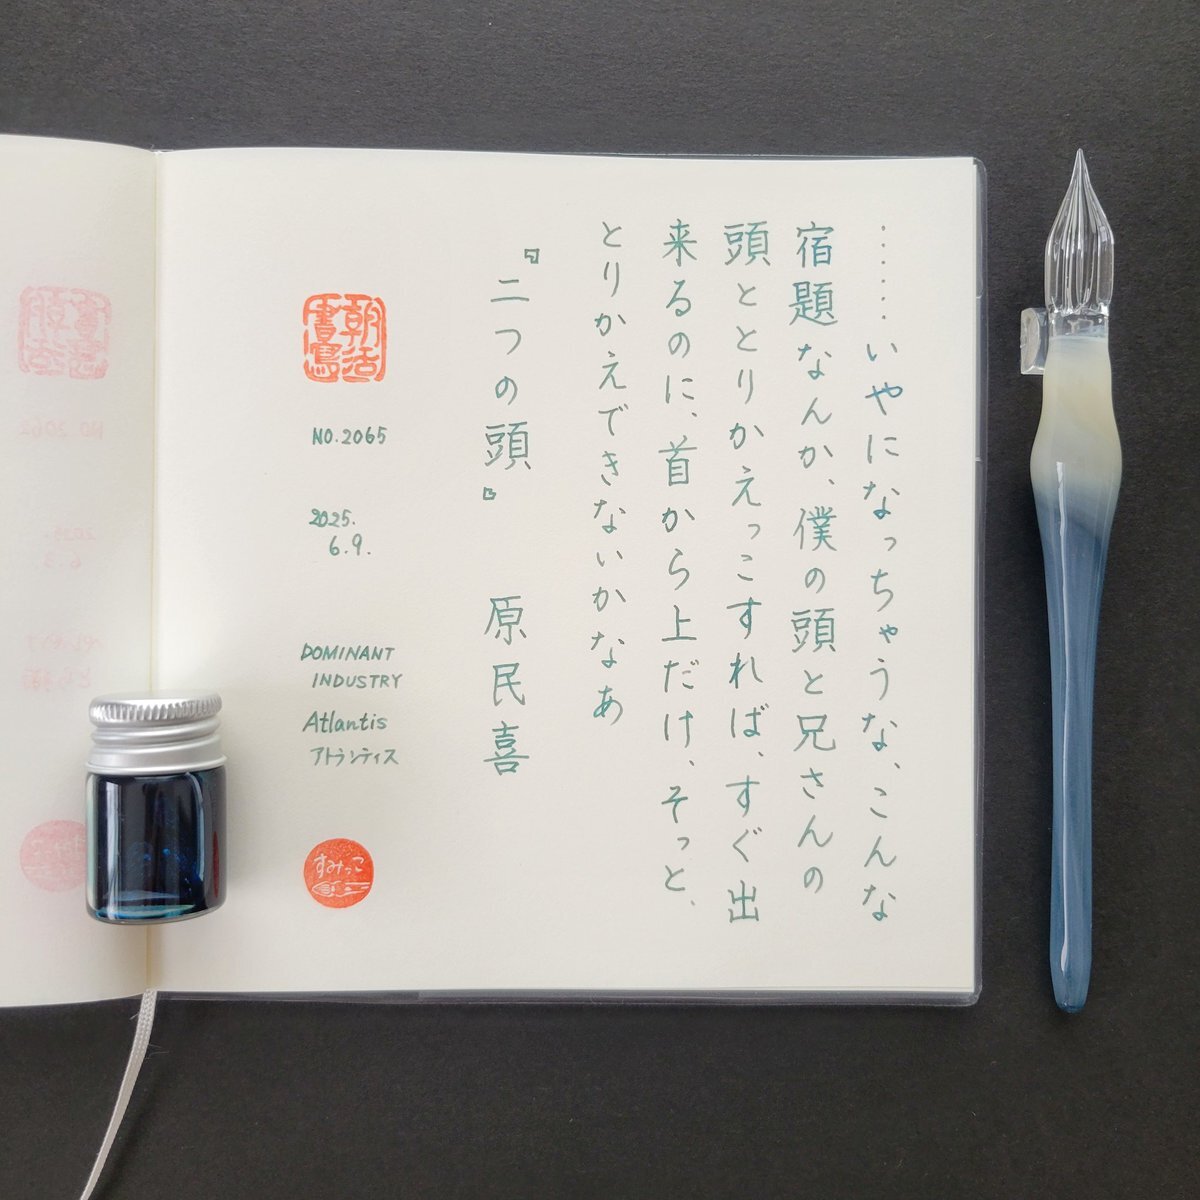 ……いやになっちゃうな、こんな
宿題なんか、僕の頭と兄さんの
頭ととりかえっこすれば、すぐ出
来るのに、首から上だけ、そっと、
とりかえできないかなあ
『二つの頭』 原民喜
朝活
書寫
NO.2065
2025.
6.9.
DOMINANT
INDUSTRY
Atlantis
アトランティス
すみっこ